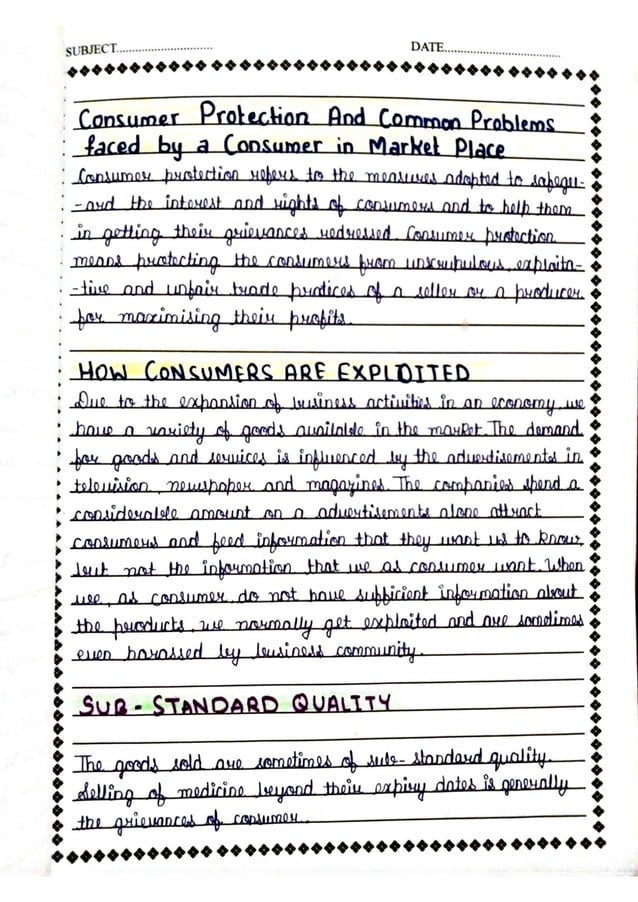 SUBJECT..............................
DATE.....................................
Consumer Protection And Common Problems
faced by a Consumer in Market Place
Consumer protection refers to the measures adopted to safegu-
-ard the interest and rights of consumers and to help them
in getting their grievances redressed. Consumer protection
means protecting the consumers from unscrupulous, exploita-
-tive and unfair trade practices of a seller or a producer
for maximising their profits.
HOW CONSUMERS ARE EXPLOITED
Due to the expansion of business activities in an economy, we
have a variety of goods available in the market. The demand
for goods and services is influenced by the advertisements in
television, newspaper and magazines. The companies spend a
considerable amount on a advertisements alone attract
consumers and feed information that they want us to know,
but not the information that we as consumer want. When
we, as consumer, do not have sufficient information about
the products, we normally get exploited and are sometimes
even harassed by business community.
SUB - STANDARD QUALITY
The goods sold are sometimes of sub- standard quality.
Selling of medicine beyond their expiry dates is generally
the grievances of consumer.